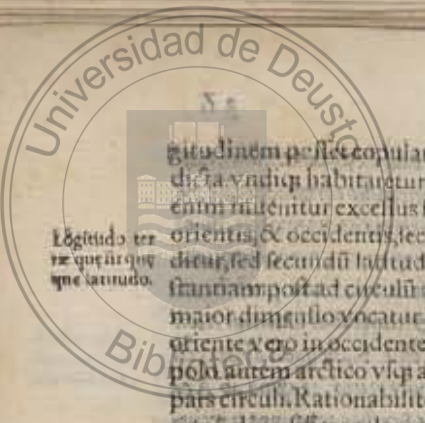 Universidad de Deusto
Biblioteca
Lõgitudo ter
ræ quę sit quę
que latitudo.
gitudinem posset copular
dicta vndiq; habitaretur
enim inuenitur excelsus
orientis, & occidentis, sec
dicitur, sed secundũ latitud
stantiam post ad circulũ
maior dimgutio vocatur
oriente vero in occidente
polo autem arctico vsq; a
pars circuli. Rationabilit